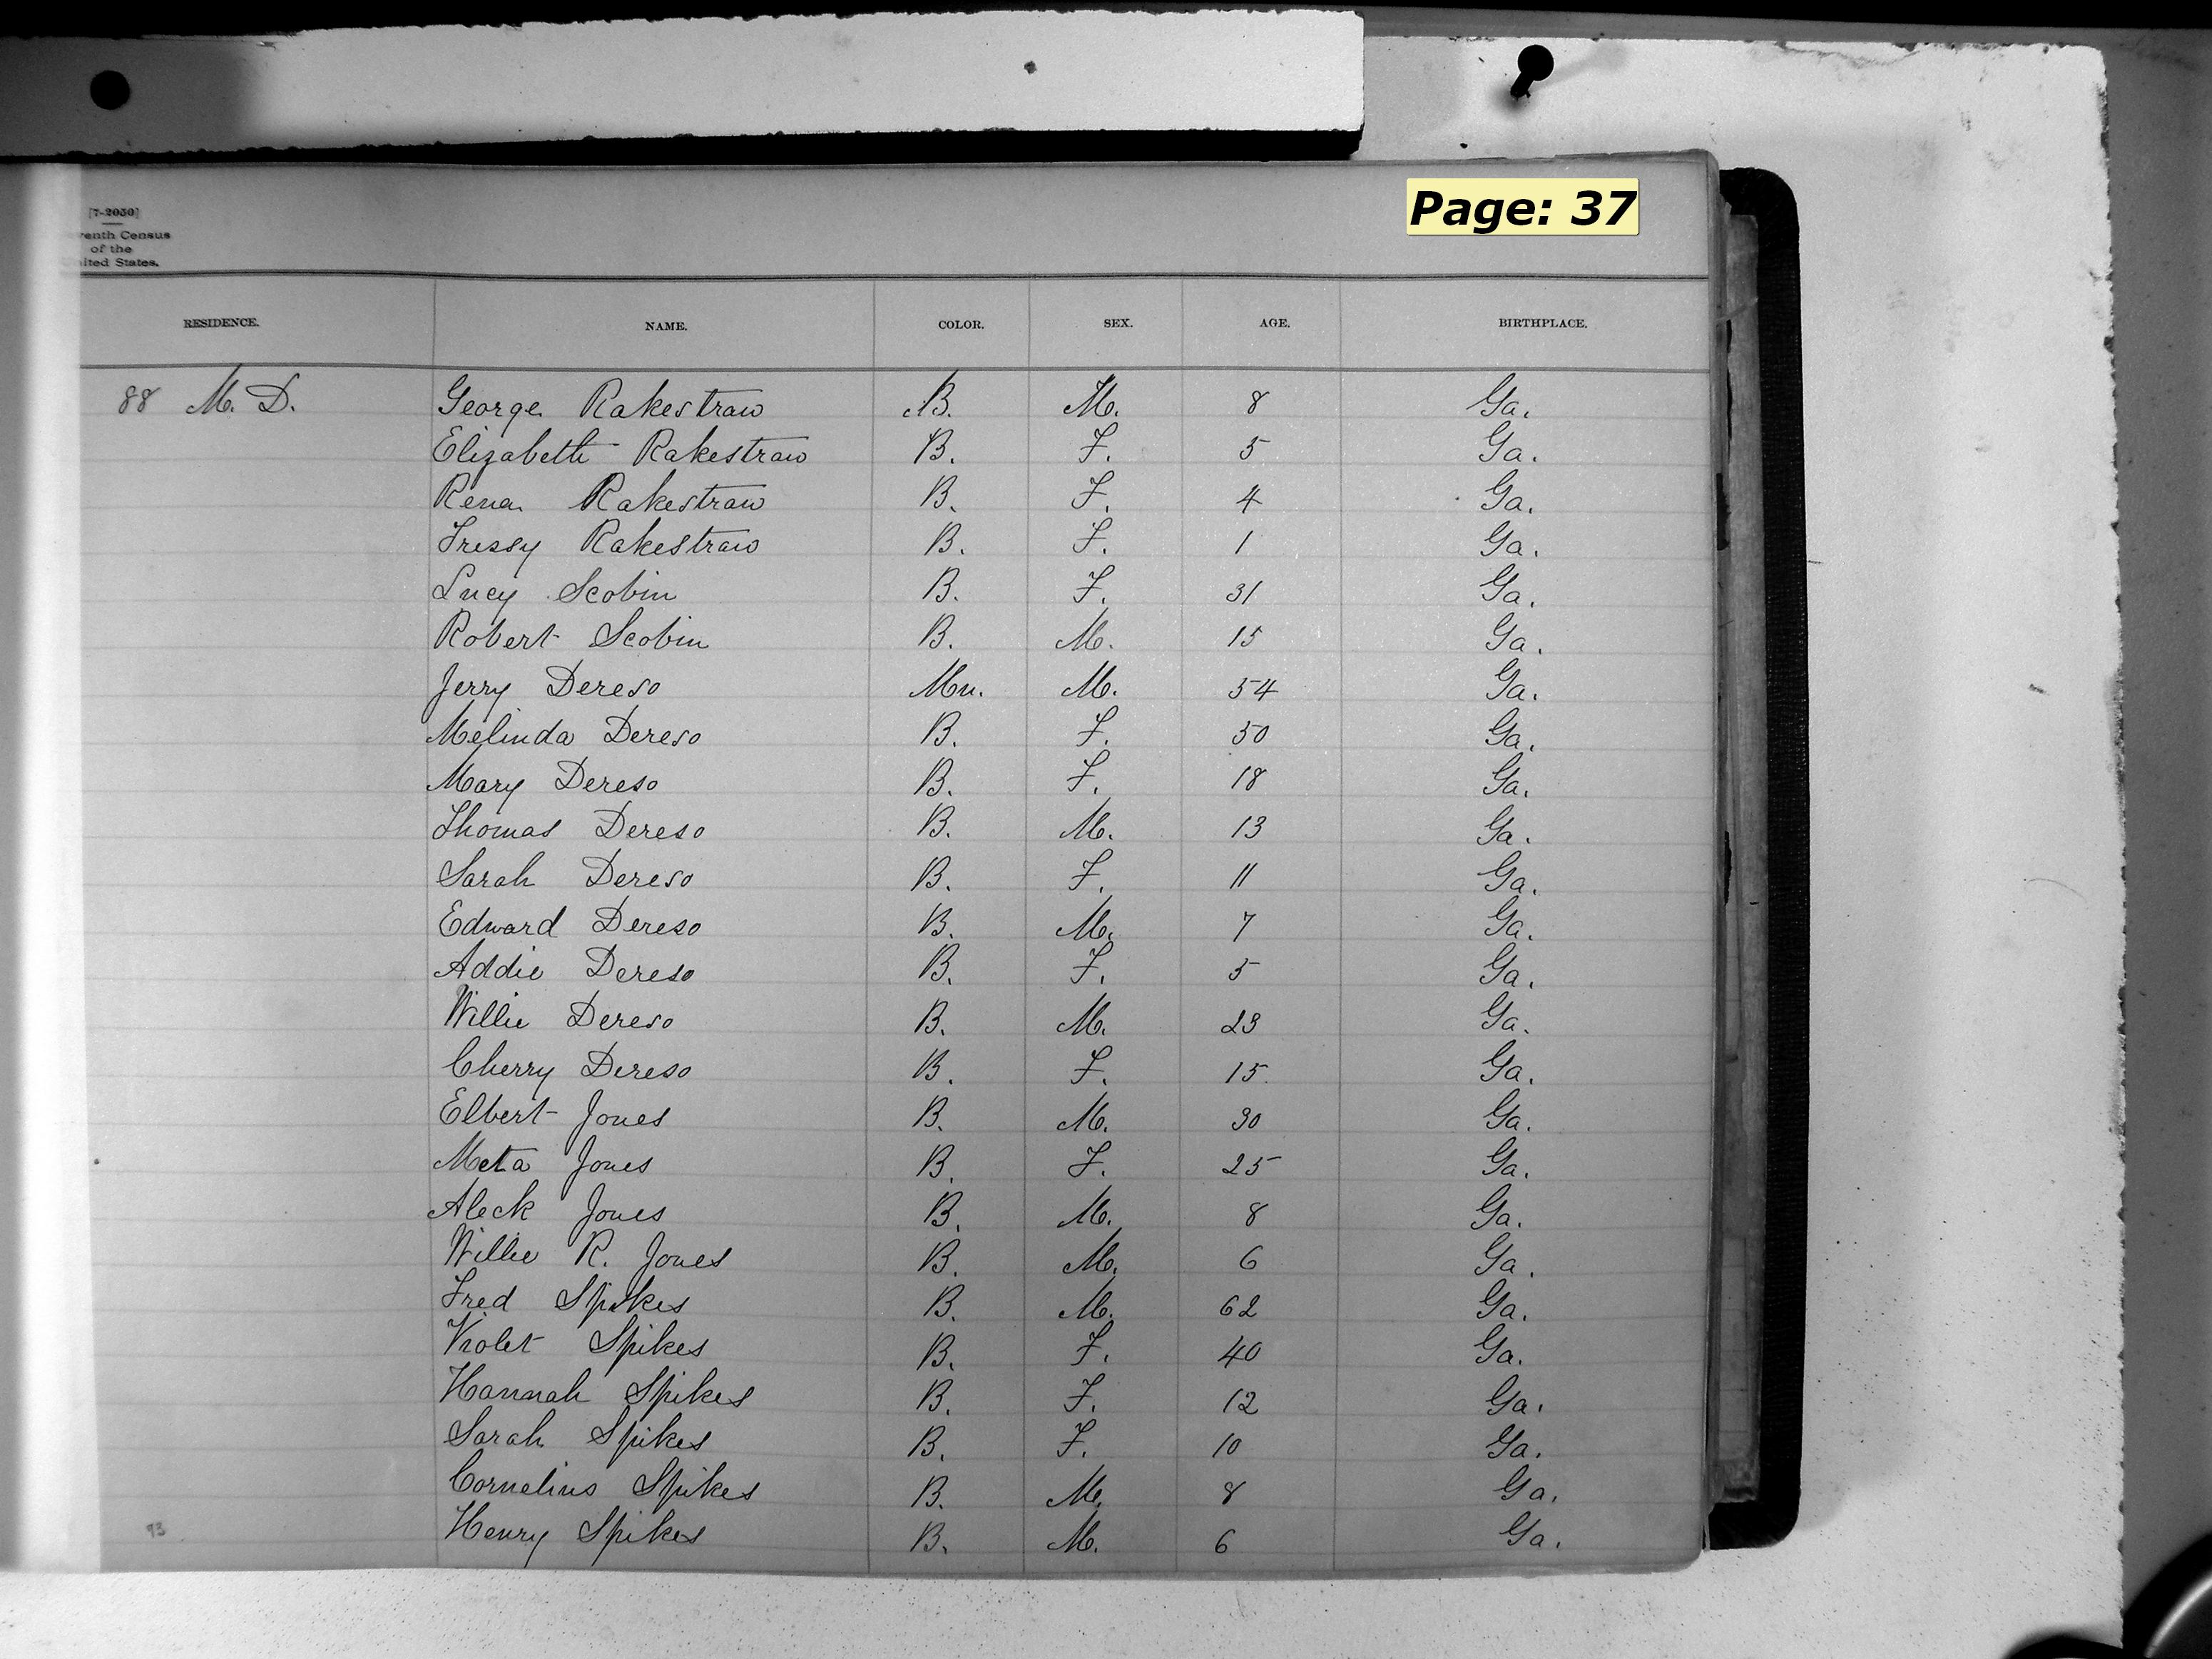 Page: 37
[7-2050]
enth Census
of the
ited States.
RESIDENCE. NAME. COLOR. SEX. AGE. BIRTHPLACE.
88 M. D. George Rakestraw B. M. 8 Ga.
Elizabeth Rakestraw B. F. 5 Ga.
Rena Rakestraw B. F. 4 Ga.
Tressy Rakestraw B. F. 1 Ga.
Lucy Scobin B. F. 31 Ga.
Robert Scobin B. M. 15 Ga.
Jerry Dereso Mu. M. 54 Ga.
Melinda Dereso B. F. 50 Ga.
Mary Dereso B. F. 18 Ga.
Thomas Dereso B. M. 13 Ga.
Sarah Dereso B. F. 11 Ga.
Edward Dereso B. M. 7 Ga.
Addie Dereso B. F. 5 Ga.
Willie Dereso B. M. 23 Ga.
Cherry Dereso B. F. 15 Ga.
Elbert Jones B. M. 30 Ga.
Meta Jones B. F. 25 Ga.
Aleck Jones B. M. 8 Ga.
Willie R. Jones B. M. 6 Ga.
Fred Spikes B. M. 62 Ga.
Violet Spikes B. F. 40 Ga.
Hannah Spikes B. F. 12 Ga.
Sarah Spikes B. F. 10 Ga.
Cornelius Spikes B. M. 8 Ga.
Henry Spikes B. M. 6 Ga.